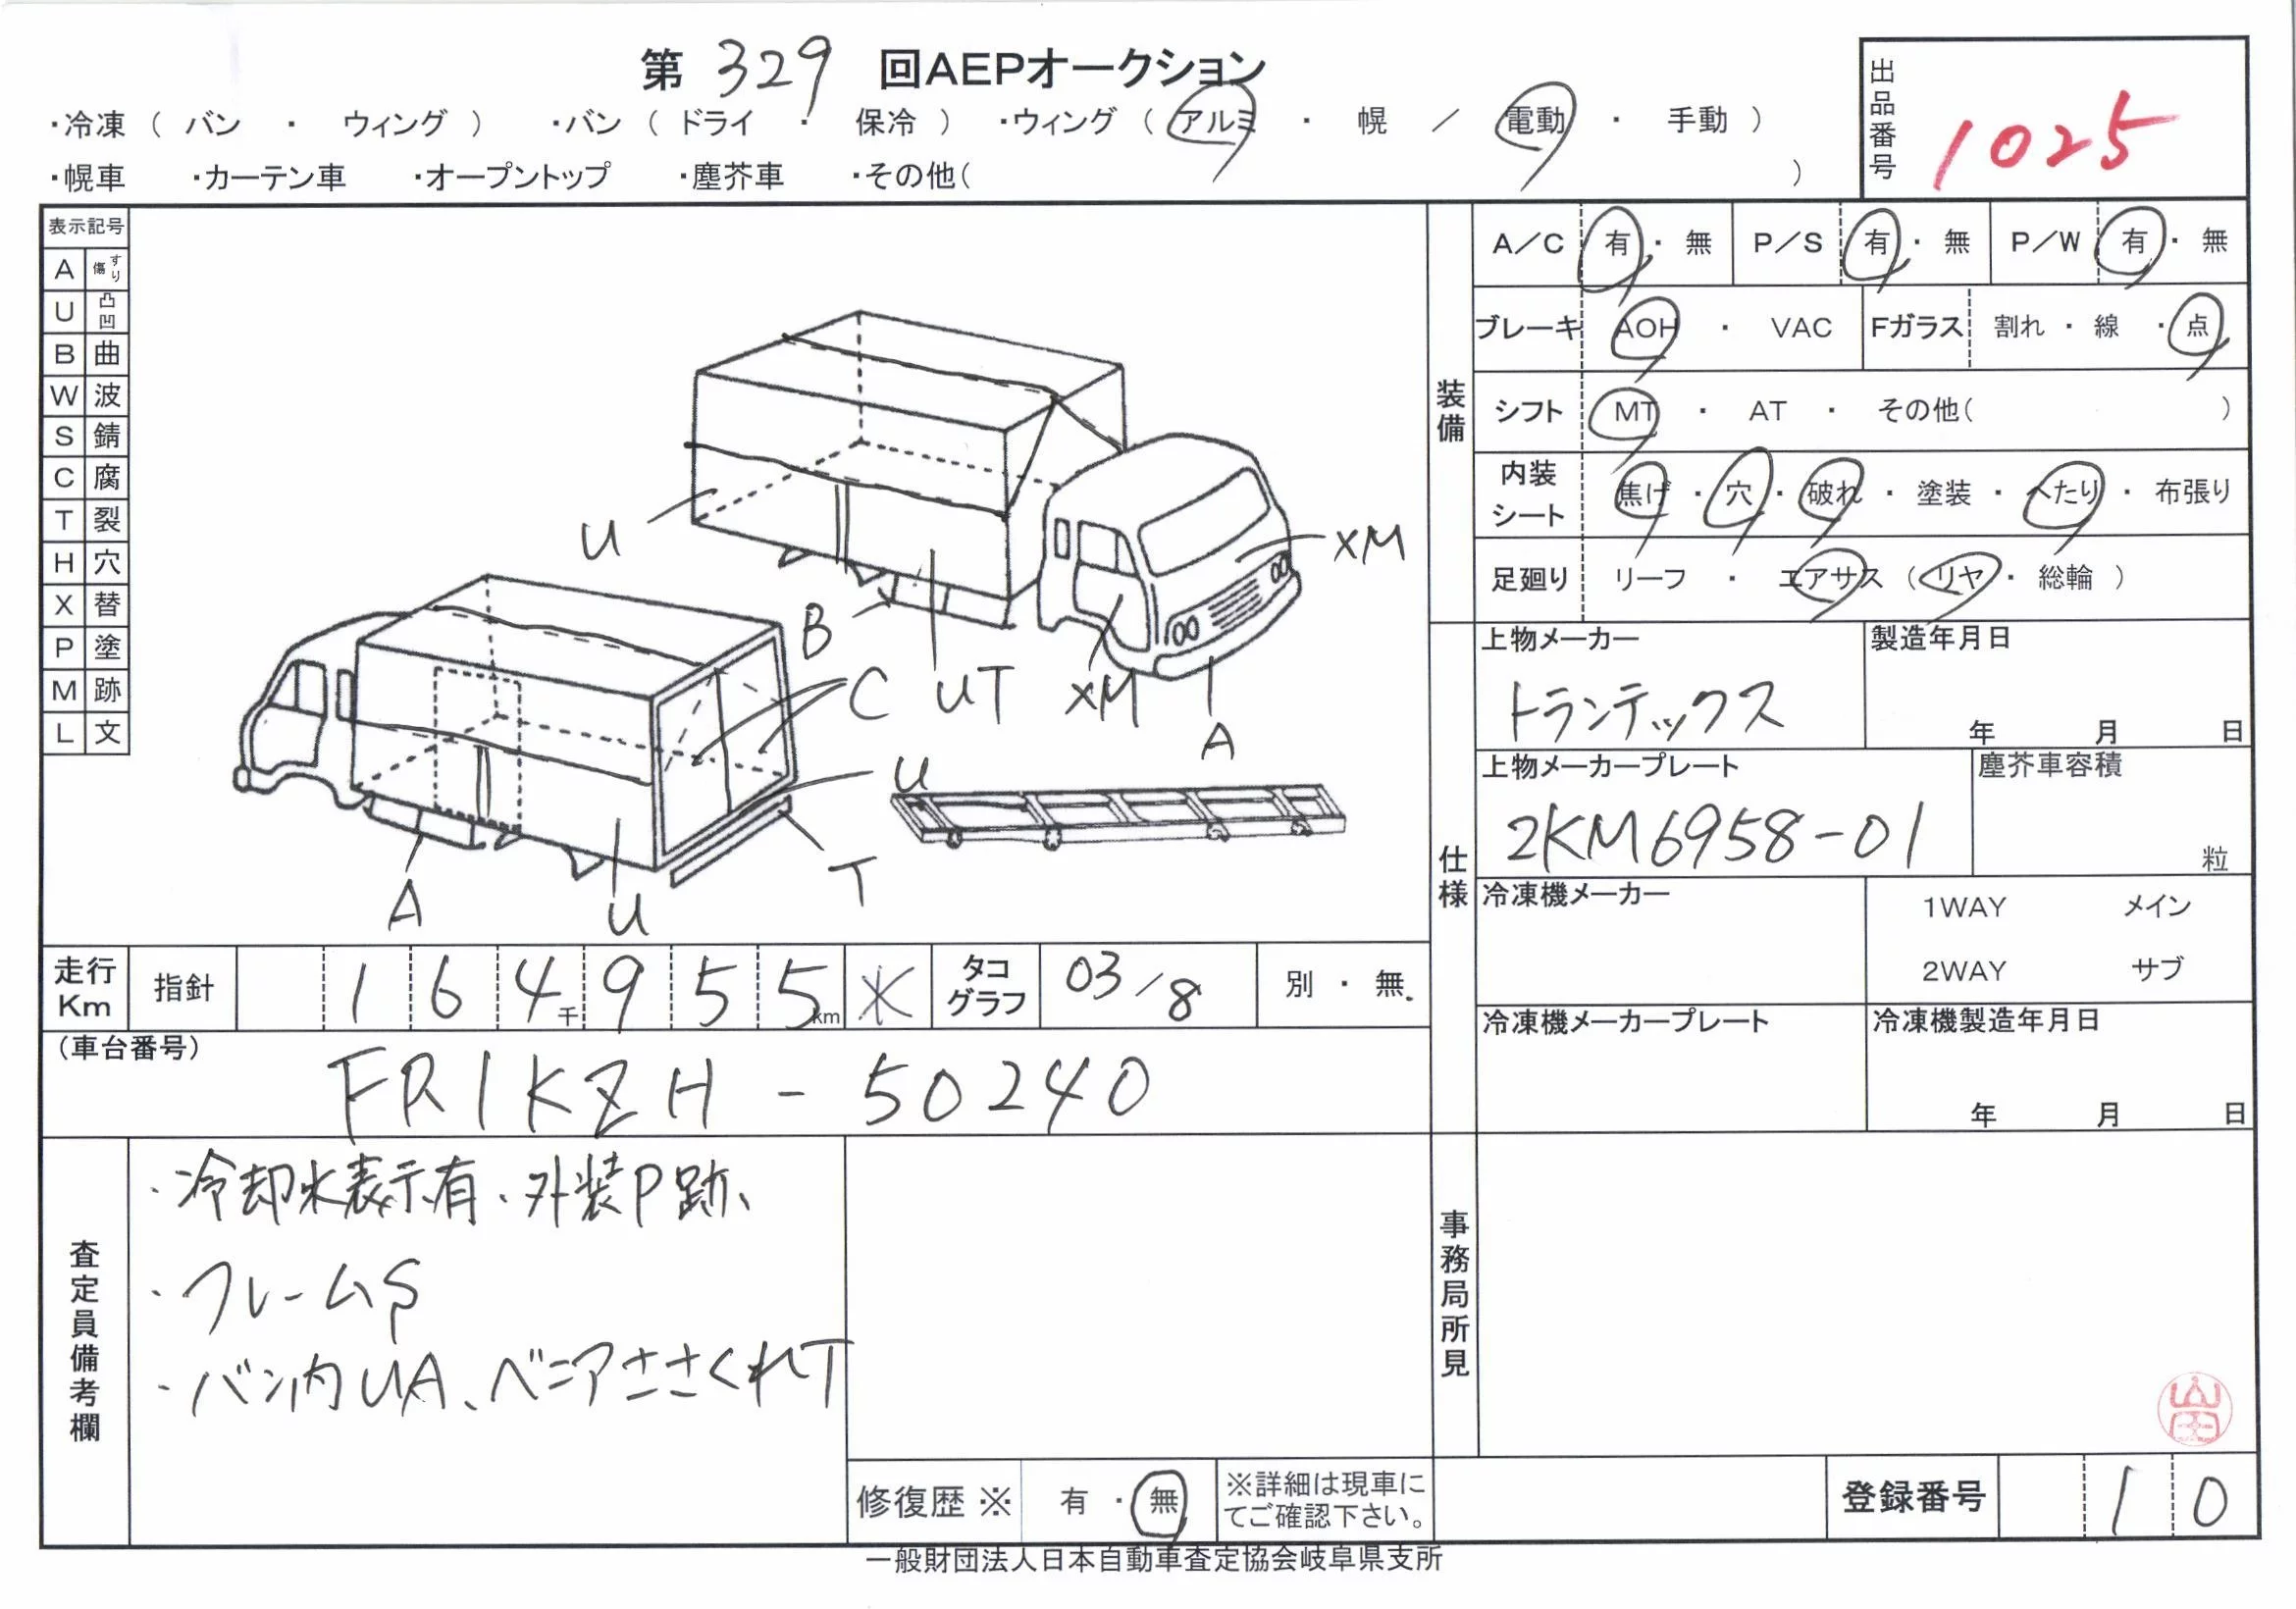 第 329 回AEPオークション
出品番号 1025
・冷凍 ( バン ・ ウィング ) ・バン ( ドライ ・ 保冷 ) ・ウィング ( アルミ ・ 幌 ／ 電動 ・ 手動 )
・幌車 ・カーテン車 ・オープントップ ・塵芥車 ・その他( )
表示記号
A すり傷
U 凸凹
B 曲
W 波
S 錆
C 腐
T 裂
H 穴
X 替
P 塗
M 跡
L 文
U
XM
B
C
UT
XM
A
U
T
A
U
装備
A／C 有 ・ 無 P／S 有 ・ 無 P／W 有 ・ 無
ブレーキ AOH ・ VAC Fガラス 割れ ・ 線 ・ 点
シフト MT ・ AT ・ その他( )
内装シート 焦げ ・ 穴 ・ 破れ ・ 塗装 ・ へたり ・ 布張り
足廻り リーフ ・ エアサス ( リヤ ・ 総輪 )
仕様
上物メーカー 製造年月日
トランテックス 年 月 日
上物メーカープレート 塵芥車容積
2KM6958-01 粒
冷凍機メーカー 1WAY メイン
2WAY サブ
冷凍機メーカープレート 冷凍機製造年月日
年 月 日
走行Km 指針 1 6 4千 9 5 5km ※ タコグラフ 03/8 別 ・ 無
(車台番号)
FR1KZH - 50240
査定員備考欄
・冷却水表示有、外装P跡、
・フレームS
・バン内UA、ベニアささくれT
修復歴 ※ 有 ・ 無 ※詳細は現車にてご確認下さい。
事務局所見
登録番号 1 0
一般財団法人日本自動車査定協会岐阜県支所